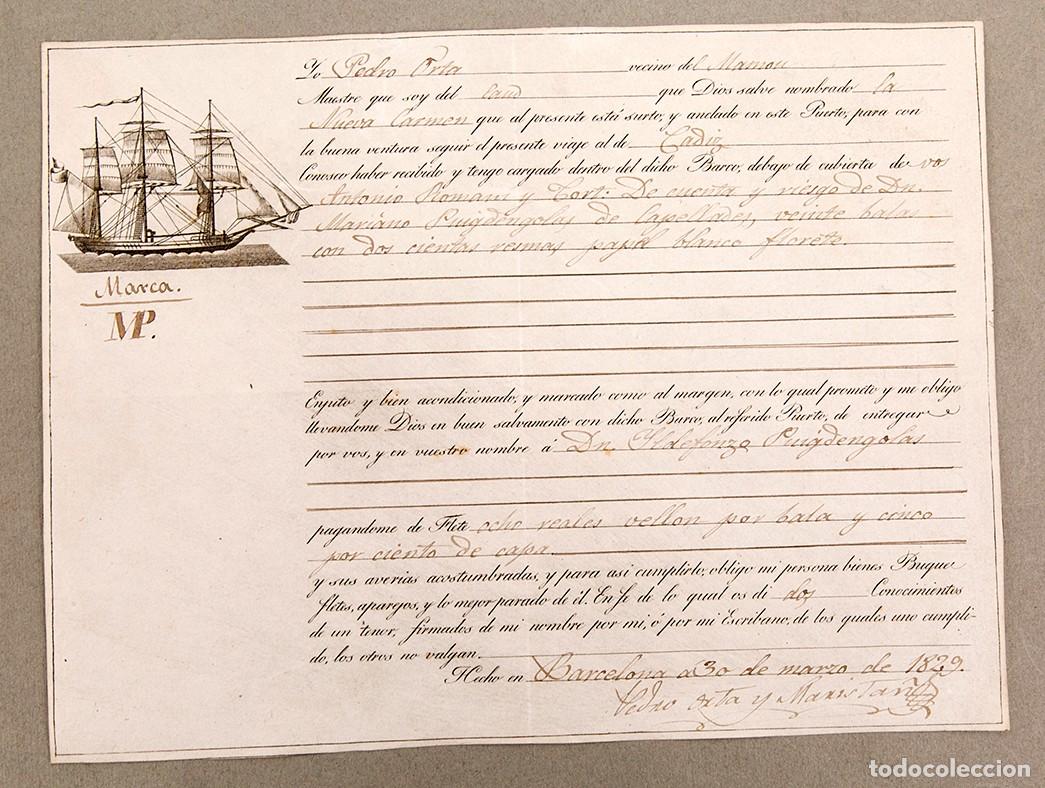 Yo Pedro Orta vecino del Masnou
Maestre que soy del laud que Dios salve nombrado la
Nueva Carmen que al presente está surto, y anclado en este Puerto, para con
la buena ventura seguir el presente viaje al de Cadiz
Conosco haber recibido y tengo cargado dentro del dicho Barco, debajo de cubierta de vos
Antonio Romani y Tort: De cuenta y riesgo de Dn.
Mariano Puigdengolas de Capellades, veinte balas
con dos cientas resmas papel blanco florete.
Marca.
MP.
Enjuto y bien acondicionado, y marcado como al margen, con lo qual prometo y me obligo
llevandome Dios en buen salvamento con dicho Barco, al referido Puerto, de entregar
por vos, y en vuestro nombre á Dn. Ildefonzo Puigdengolas
pagandome de Flete ocho reales vellon por bala y cinco
por ciento de capa
y sus averias acostumbradas, y para asi cumplirlo, obligo mi persona bienes Buque
fletes, aparejos, y lo mejor parado de él. En fe de lo qual os di dos Conocimientos
de un tenor, firmados de mi nombre por mi, ó por mi Escribano, de los quales uno cumpli-
do, los otros no valgan.
Hecho en Barcelona a 30 de marzo de 1829.
Pedro Orta y Maristañ
todocoleccion